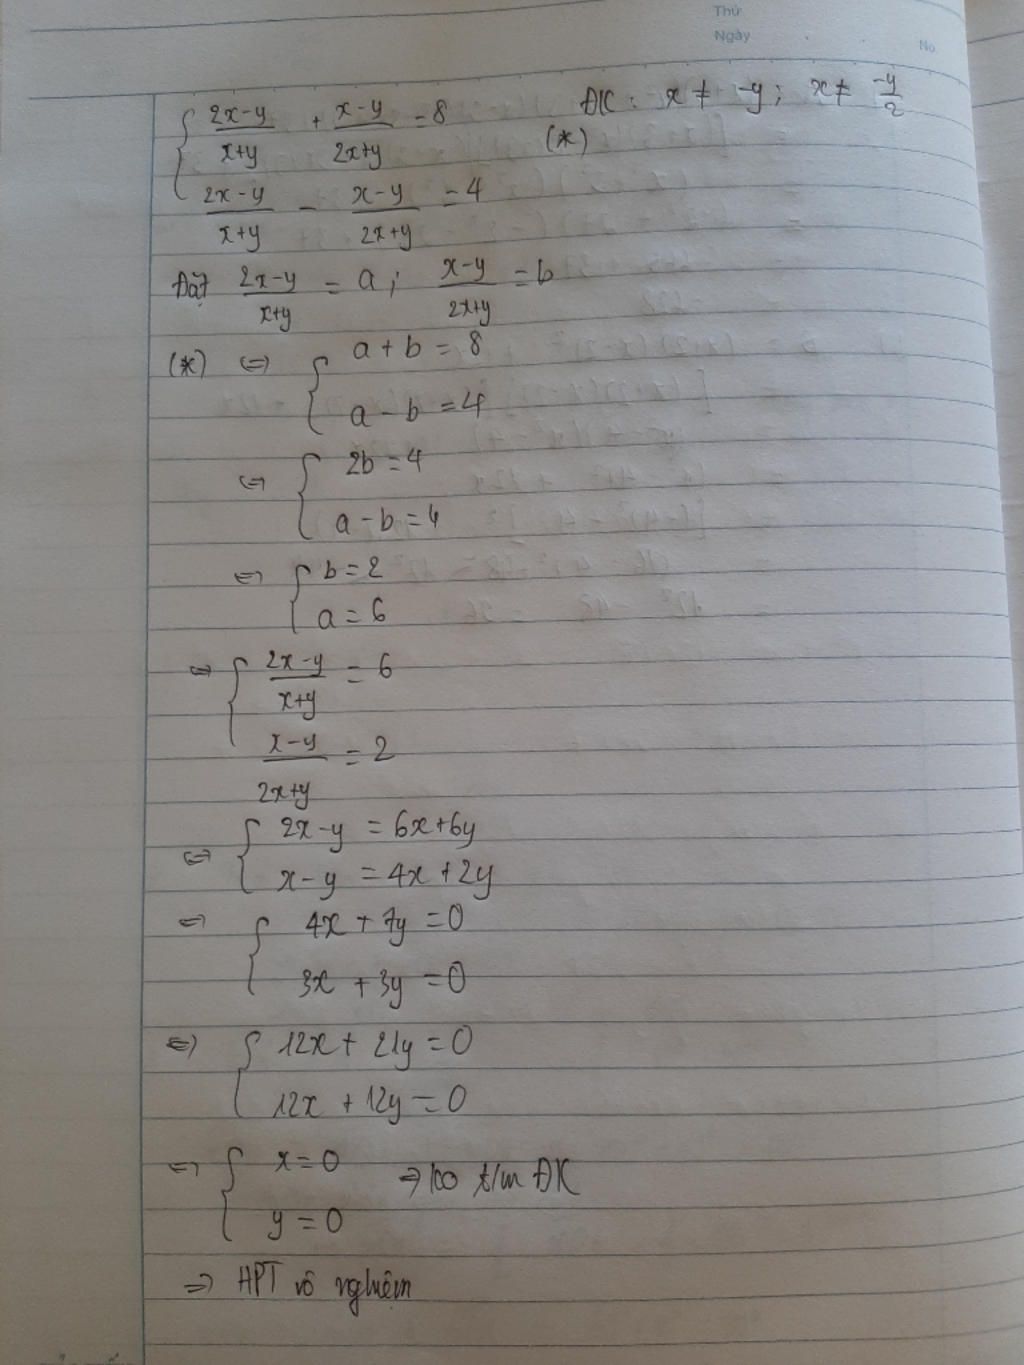 Thứ
Ngày
No
{ (2x-y)/(x+y) + (x-y)/(2x+y) = 8 (*) ĐK : x ≠ -y ; x ≠ -y/2
(2x-y)/(x+y) - (x-y)/(2x+y) = 4
Đặt (2x-y)/(x+y) = a ; (x-y)/(2x+y) = b
(*) <=> { a + b = 8
a - b = 4
<=> { 2b = 4
a - b = 4
<=> { b = 2
a = 6
<=> { (2x-y)/(x+y) = 6
(x-y)/(2x+y) = 2
<=> { 2x-y = 6x+6y
x-y = 4x+2y
<=> { 4x + 7y = 0
3x + 3y = 0
<=> { 12x + 21y = 0
12x + 12y = 0
<=> { x = 0 => ko t/m ĐK
y = 0
=> HPT vô nghiệm